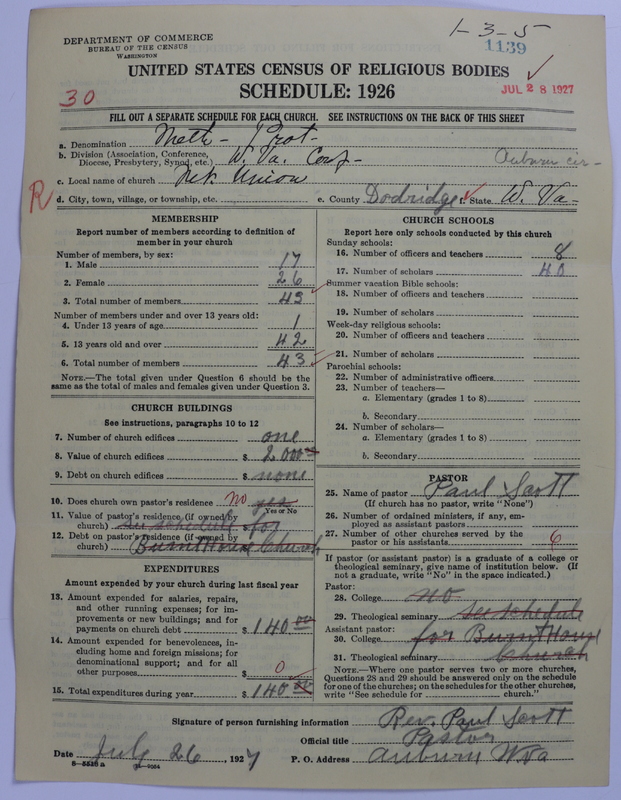 DEPARTMENT OF COMMERCE
BUREAU OF THE CENSUS
WASHINGTON
1-3-5
1139
UNITED STATES CENSUS OF RELIGIOUS BODIES
SCHEDULE: 1926
JUL 28 1927
30
FILL OUT A SEPARATE SCHEDULE FOR EACH CHURCH. SEE INSTRUCTIONS ON THE BACK OF THIS SHEET
a. Denomination Meth- Prot-
b. Division (Association, Conference, Diocese, Presbytery, Synod, etc.) W. Va. Conf- Auburn cir-
c. Local name of church Union
R
d. City, town, village, or township, etc.
e. County Dodridge f. State W. Va-
MEMBERSHIP
Report number of members according to definition of
member in your church
Number of members, by sex:
1. Male 17
2. Female 26
3. Total number of members 43
Number of members under and over 13 years old:
4. Under 13 years of age 1
5. 13 years old and over 42
6. Total number of members 43
NOTE.—The total given under Question 6 should be
same as the total of males and females given under Question 3.
CHURCH BUILDINGS
See instructions, paragraphs 10 to 12
7. Number of church edifices one
8. Value of church edifices $ 2000
9. Debt on church edifices $ none
10. Does church own pastor's residence No yes
Yes or No
11. Value of pastor's residence (if owned by
church) see schedule $ for
12. Debt on pastor's residence (if owned by
church) Burnt House Church
EXPENDITURES
Amount expended by your church during last fiscal year
13. Amount expended for salaries, repairs,
and other running expenses; for im-
provements or new buildings; and for
payments on church debt $ 140 00
14. Amount expended for benevolences, in-
cluding home and foreign missions; for
denominational support; and for all
other purposes $ 0
15. Total expenditures during year $ 140 00
CHURCH SCHOOLS
Report here only schools conducted by this church
Sunday schools:
16. Number of officers and teachers 8
17. Number of scholars 40
Summer vacation Bible schools:
18. Number of officers and teachers
19. Number of scholars
Week-day religious schools:
20. Number of officers and teachers
21. Number of scholars
Parochial schools:
22. Number of administrative officers
23. Number of teachers—
a. Elementary (grades 1 to 8)
b. Secondary
24. Number of scholars—
a. Elementary (grades 1 to 8)
b. Secondary
PASTOR
25. Name of pastor Paul Scott
(If church has no pastor, write "None")
26. Number of ordained ministers, if any, em-
ployed as assistant pastors
27. Number of other churches served by the
pastor or his assistants 6
If pastor (or assistant pastor) is a graduate of a college or
theological seminary, give name of institution below. (If
not a graduate, write "No" in the space indicated.)
Pastor:
28. College no
29. Theological seminary see schedule
Assistant pastor:
30. College for Burnt House
31. Theological seminary Church
NOTE.—Where one pastor serves two or more churches,
Questions 28 and 29 should be answered only on the schedule
for one of the churches; on the schedules for the other churches,
write "See schedule for church."
Signature of person furnishing information Rev. Paul Scott
Official title Pastor
Date July 26, 1927
P. O. Address Auburn W Va